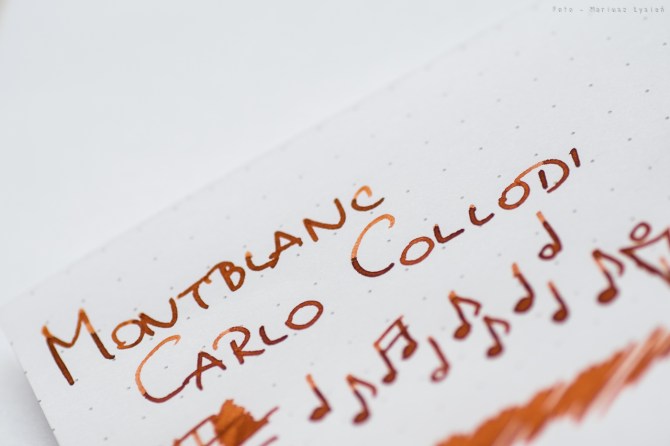 Foto - Mariusz Łysiak
MONTBLANC
CARLO COLLODI